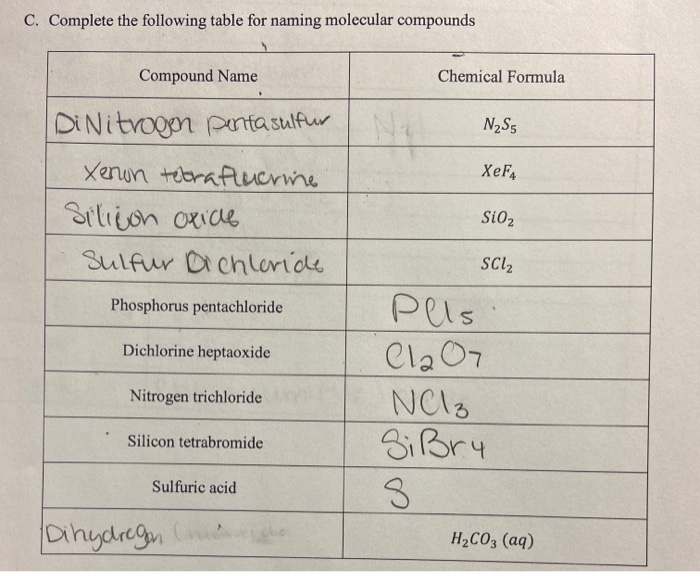 C. Complete the following table for naming molecular compounds
Compound Name Chemical Formula
DiNitrogen pentasulfur N₂S₅
Xenon tetrafluorine XeF₄
Silicon oxide SiO₂
Sulfur Dichloride SCl₂
Phosphorus pentachloride PCl5
Dichlorine heptaoxide Cl2O7
Nitrogen trichloride NCl3
Silicon tetrabromide SiBr4
Sulfuric acid S
Dihydrogen H₂CO₃ (aq)